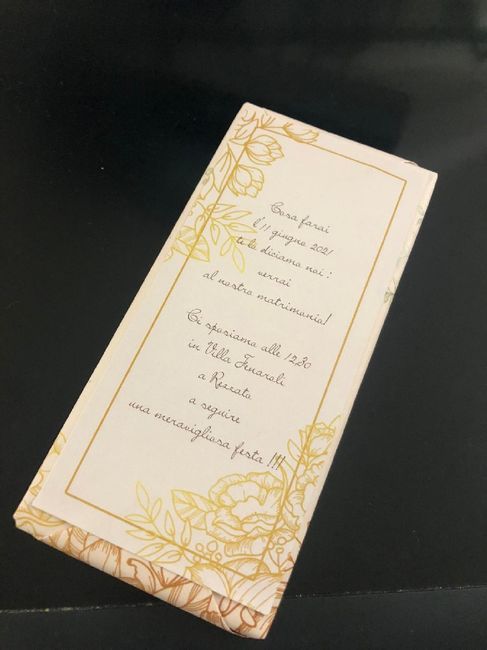 Cosa farai
l'11 giugno 2021
te lo diciamo noi:
verrai
al nostro matrimonio!
Ci sposiamo alle 12.30
in Villa Fenaroli
a Rezzato
a seguire
una meravigliosa festa !!!